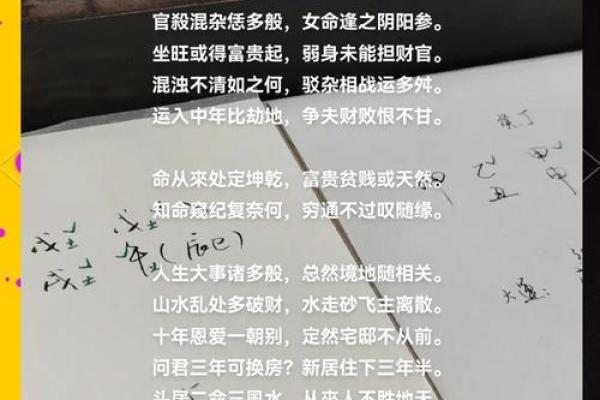 官殺混杂恁多般，女命逢之阴阳参。
坐旺或得富贵起，弱身未能担财官。
混浊不清如之何，驳杂相战运多舛。
运入中年比劫地，争夫财败恨不甘。
命从來处定坤乾，富贵贫贱或天然。
知命窥纪复奈何，穷通不过叹随缘。
人生大事诸多般，总然境地随相关。
山水乱处多破财，水走砂飞主离散。
十年恩爱一朝别，定然宅邸不从前。
问君三年可换房？新居住下三年半。
二命三風水，从來人不胜地天
戊土 戊土
戊土 午土（辰巳）
乙 甲
丑 申
大运：